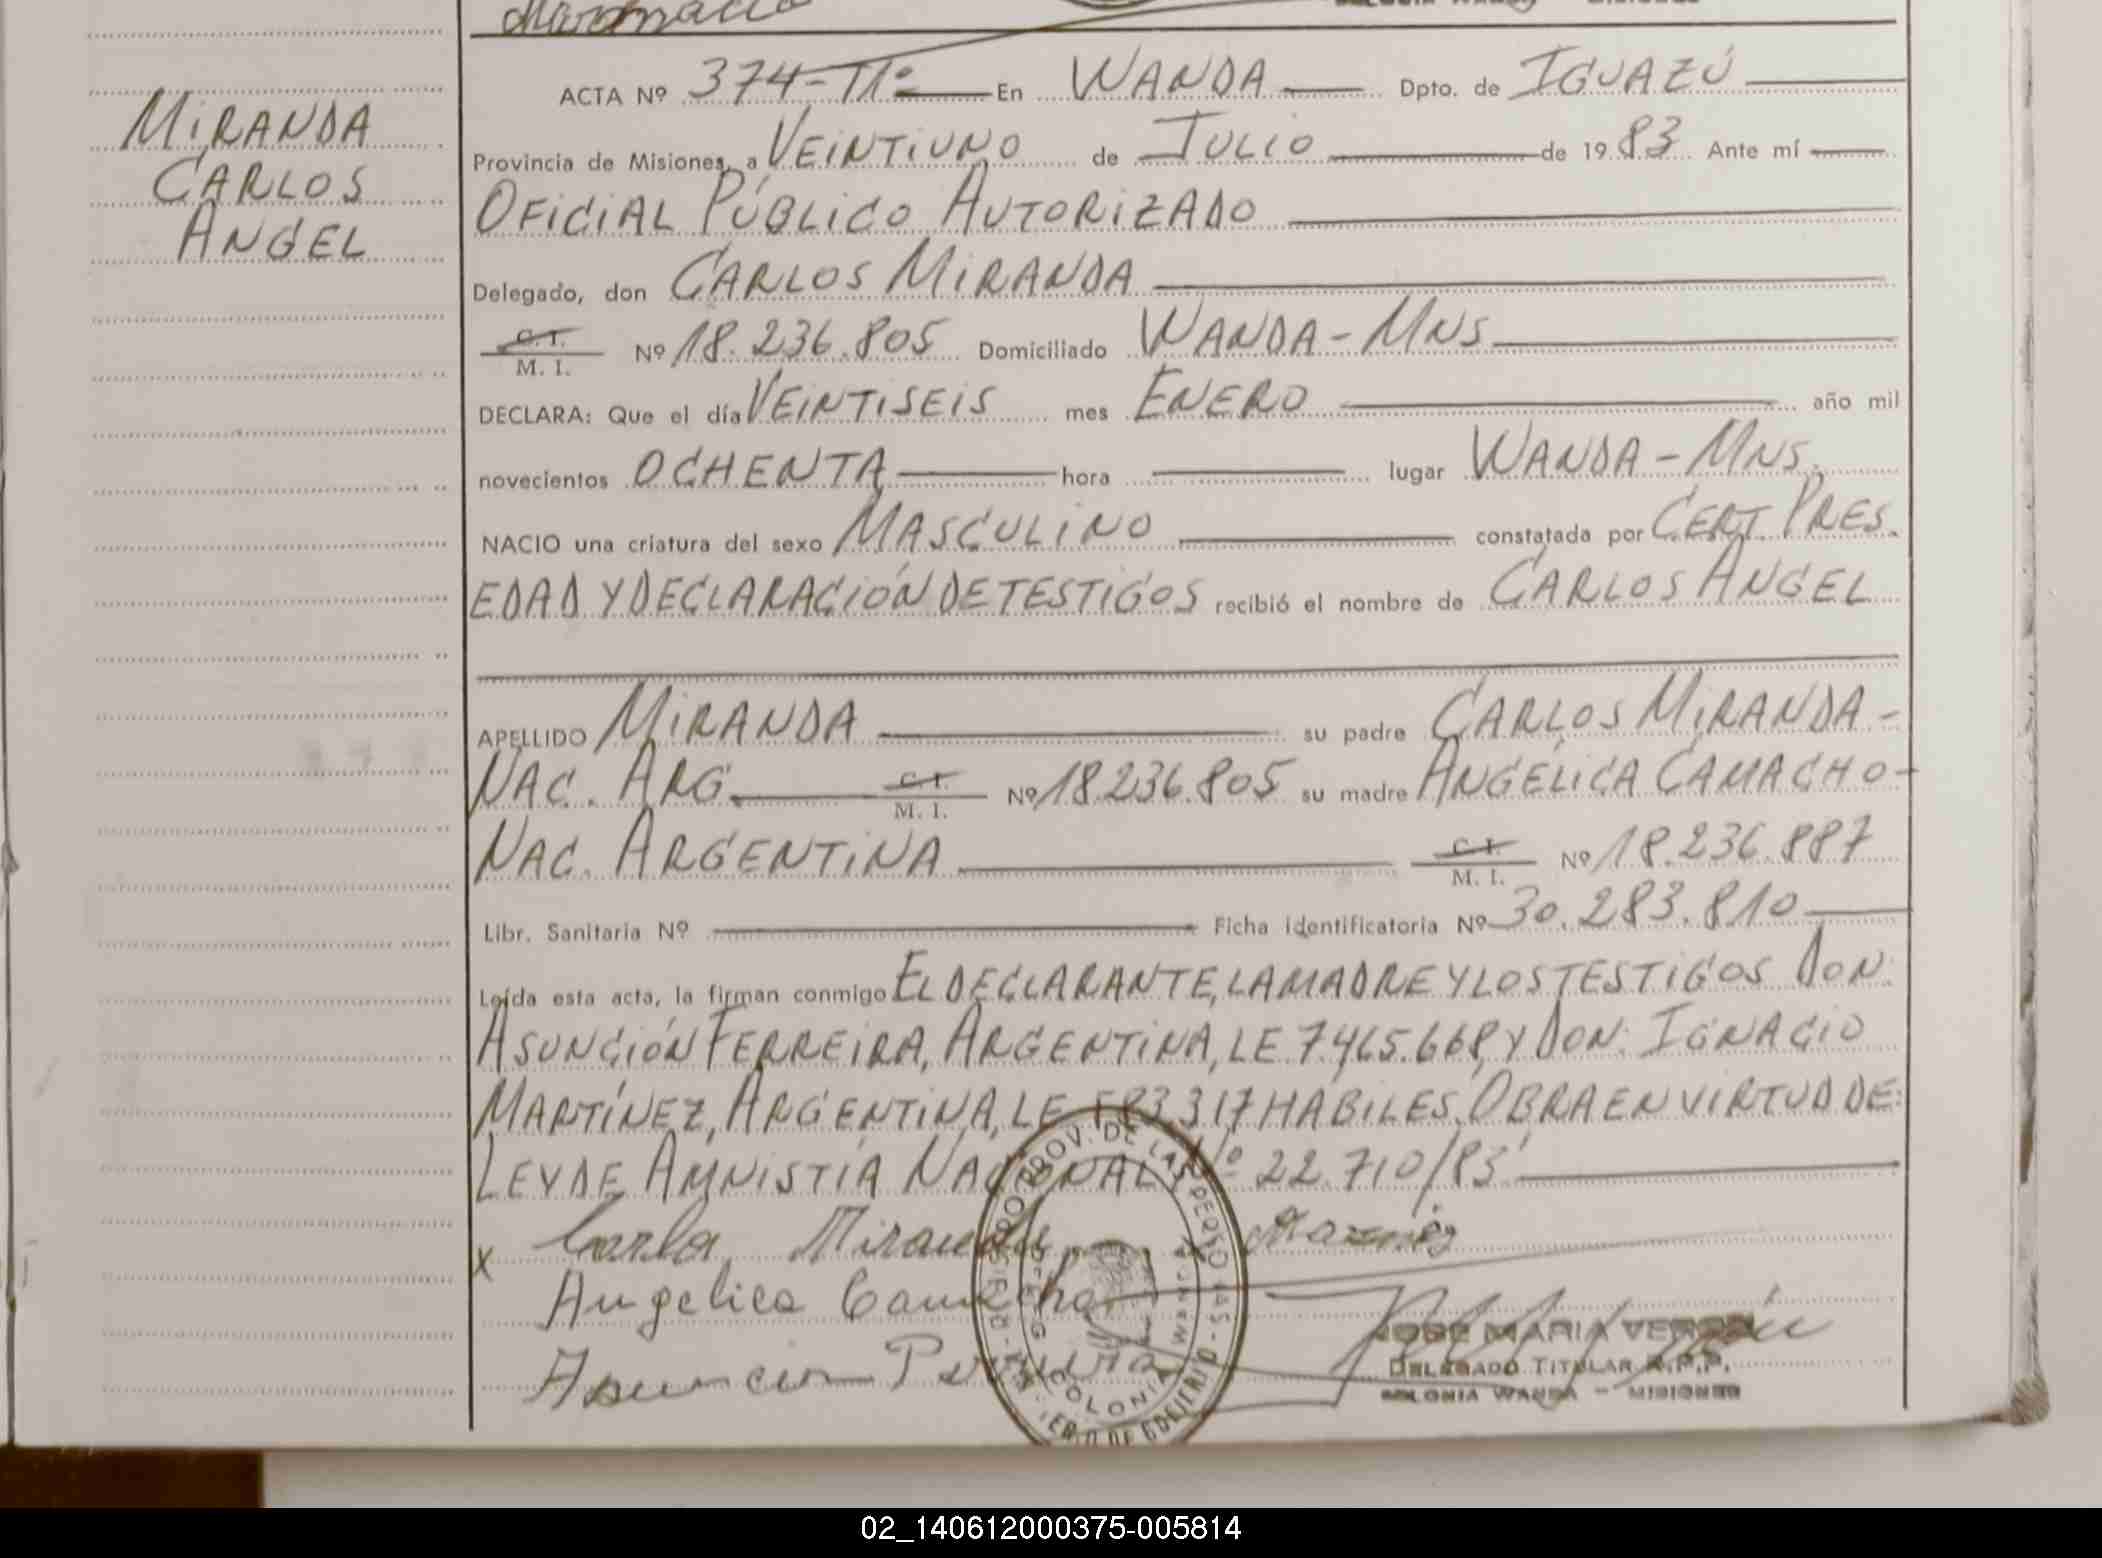 MIRANDA
CARLOS
ANGEL
ACTA Nº 374-T1º En WANDA Dpto. de IGUAZÚ
Provincia de Misiones, a VEINTIUNO de JULIO de 19 83 Ante mí
OFICIAL PÚBLICO AUTORIZADO
Delegado, don CARLOS MIRANDA
C. I.
M. I. Nº 18.236.805 Domiciliado WANDA-MNS
DECLARA: Que el día VEINTISEIS mes ENERO año mil
novecientos OCHENTA hora lugar WANDA-MNS.
NACIO una criatura del sexo MASCULINO constatada por CERT. PRES.
EDAD Y DECLARACIÓN DE TESTIGOS recibió el nombre de CARLOS ANGEL
APELLIDO MIRANDA su padre CARLOS MIRANDA-
NAC. ARG. C. I. M. I. Nº 18.236.805 su madre ANGÉLICA CAMACHO-
NAC. ARGENTINA C. I. M. I. Nº 18.236.887
Libr. Sanitaria Nº Ficha identificatoria Nº 30.283.810
Leída esta acta, la firman conmigo EL DECLARANTE, LA MADRE Y LOS TESTIGOS DON.
ASUNCIÓN FERREIRA, ARGENTINA, LE 7.465.668, Y DON. IGNACIO
MARTÍNEZ, ARGENTINA, LE 3317 HABILES. OBRA EN VIRTUD DE
LEY DE AMNISTIA NACIONAL Nº 22.710/83
X Carlos Miranda
Angelica Camacho
Asuncion Ferreira
PROV. DE LAS PERSONAS
COLONIA WANDA
JOSE MARIA
DELEGADO TITULAR R.P.P.
COLONIA WANDA - MISIONES
02_140612000375-005814